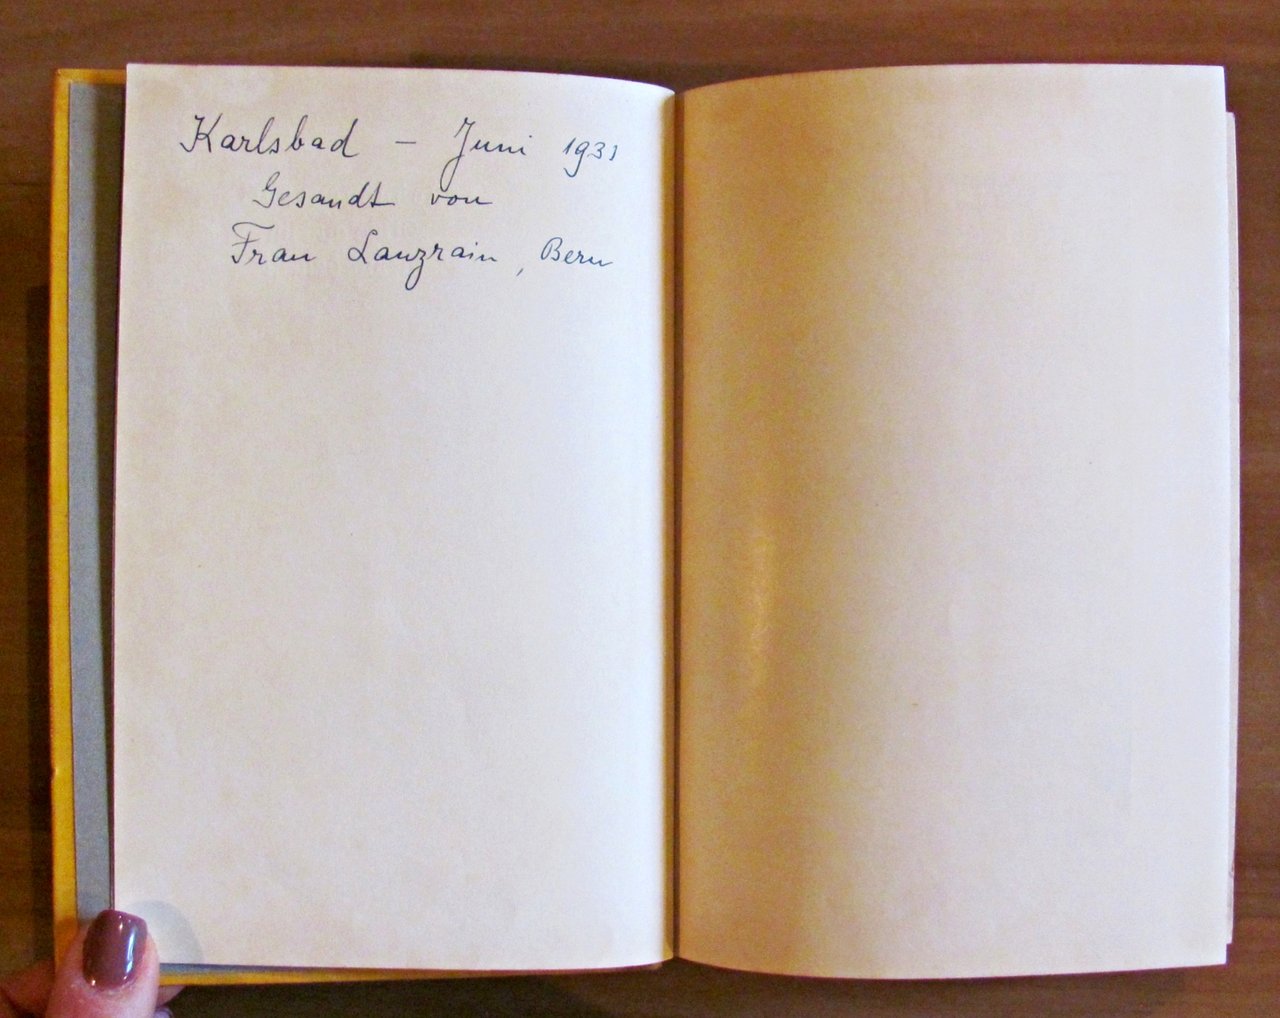 Karlsbad – Juni 1931
Gesandt von
Frau Lanzrain, Bern